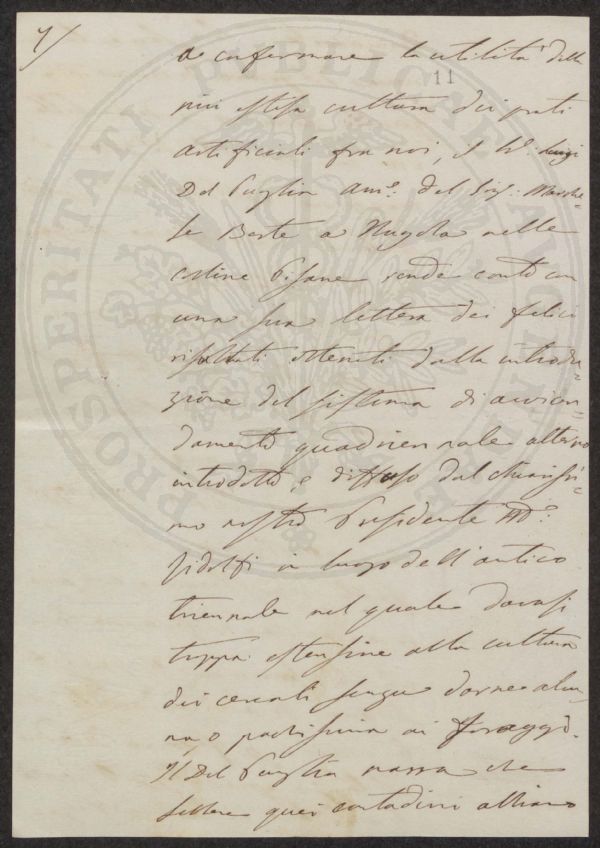 7/
a confermare la utilità della
11
più estesa cultura dei prati
artificiali fra noi, il Sr. Luigi
Del Puglia Am.e del Sig. Marche=
se Berte a Nugola nelle
colline Pisane rende conto con
una sua lettera dei felici
risultati ottenuti dalla introdu=
zione del sistema di avvicen=
damento quadriennale alterno
introdotto, e diffuso dal chiarissi=
mo nostro Presidente M.e
Ridolfi in luogo dell'antico
triennale nel quale davasi
troppa estensione alla cultura
dei cereali senza darne alcu=
na o pochissima ai foraggi.
Il Del Puglia narra che
sebbene quei contadini abbiano
PROSPERITATI PUBLICAE AUGENDAE